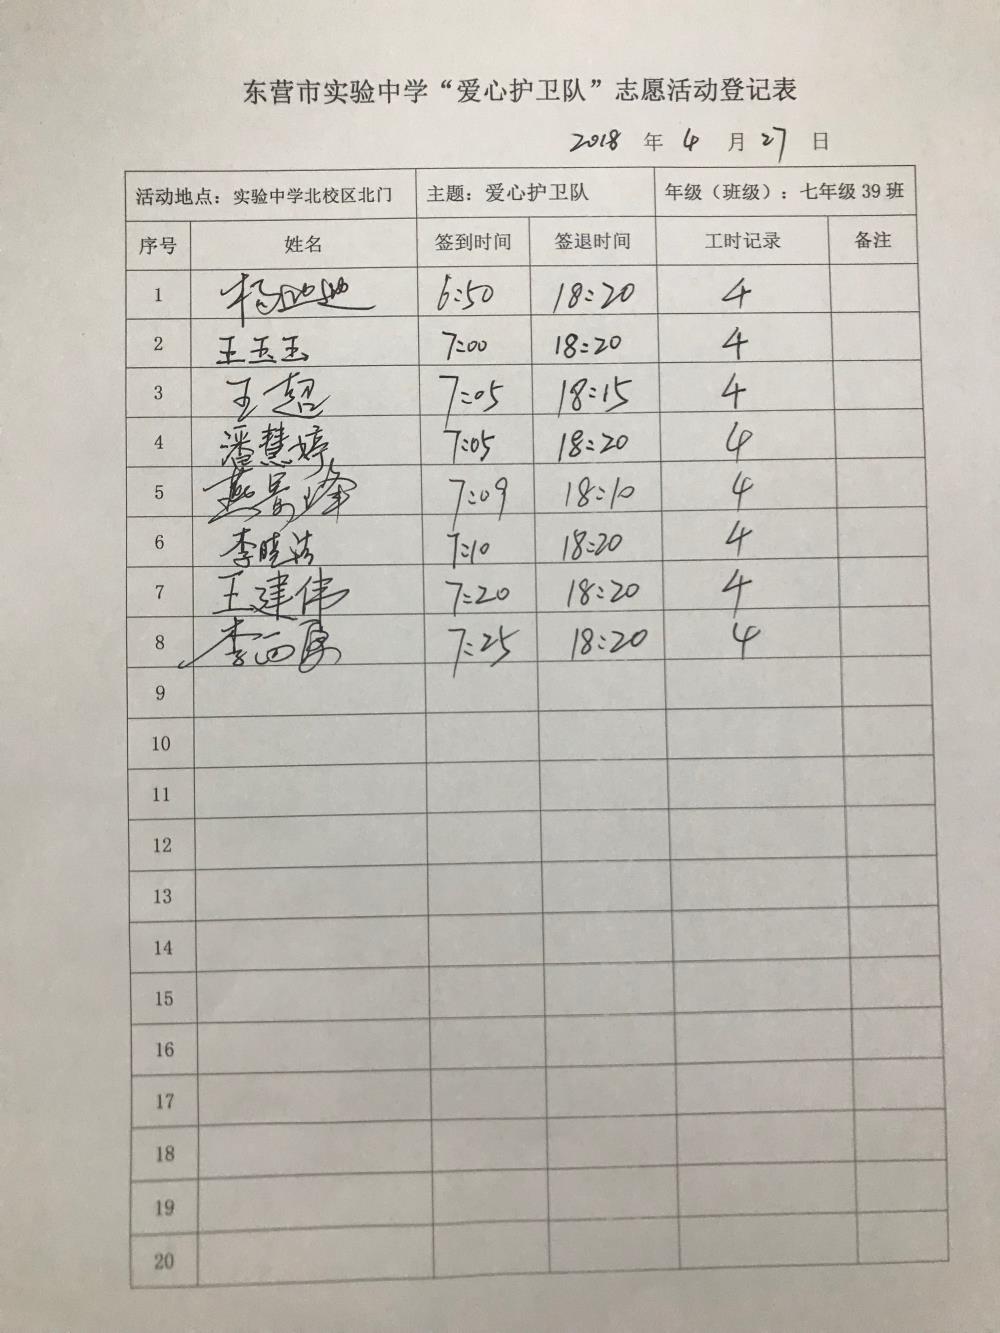 东营市实验中学“爱心护卫队”志愿活动登记表
2018 年 4 月 27 日
活动地点：实验中学北校区北门 主题：爱心护卫队 年级（班级）：七年级 39 班
序号 姓名 签到时间 签退时间 工时记录 备注
1 杨 6:50 18:20 4
2 王玉玉 7:00 18:20 4
3 王超 7:05 18:15 4
4 潘慧婷 7:05 18:20 4
5 燕 峰 7:09 18:10 4
6 李晓洁 7:10 18:20 4
7 王建伟 7:20 18:20 4
8 李 7:25 18:20 4
9
10
11
12
13
14
15
16
17
18
19
20